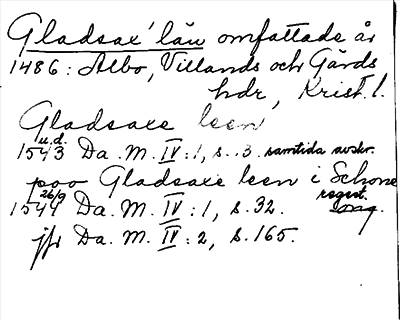 Gladsax' län omfattade år
1486: Albo, Villands och Gärds
hdr, Krist. l.
Gladsaxe leen
u.d.
1543 Da. M. IV:1, s. 3. samtida avskr.
poo Gladsaxe leen i Schone
26/9 regest.
1544 Da. M. IV:1, s. 32. orig.
jfr Da. M. IV:2, s. 165.